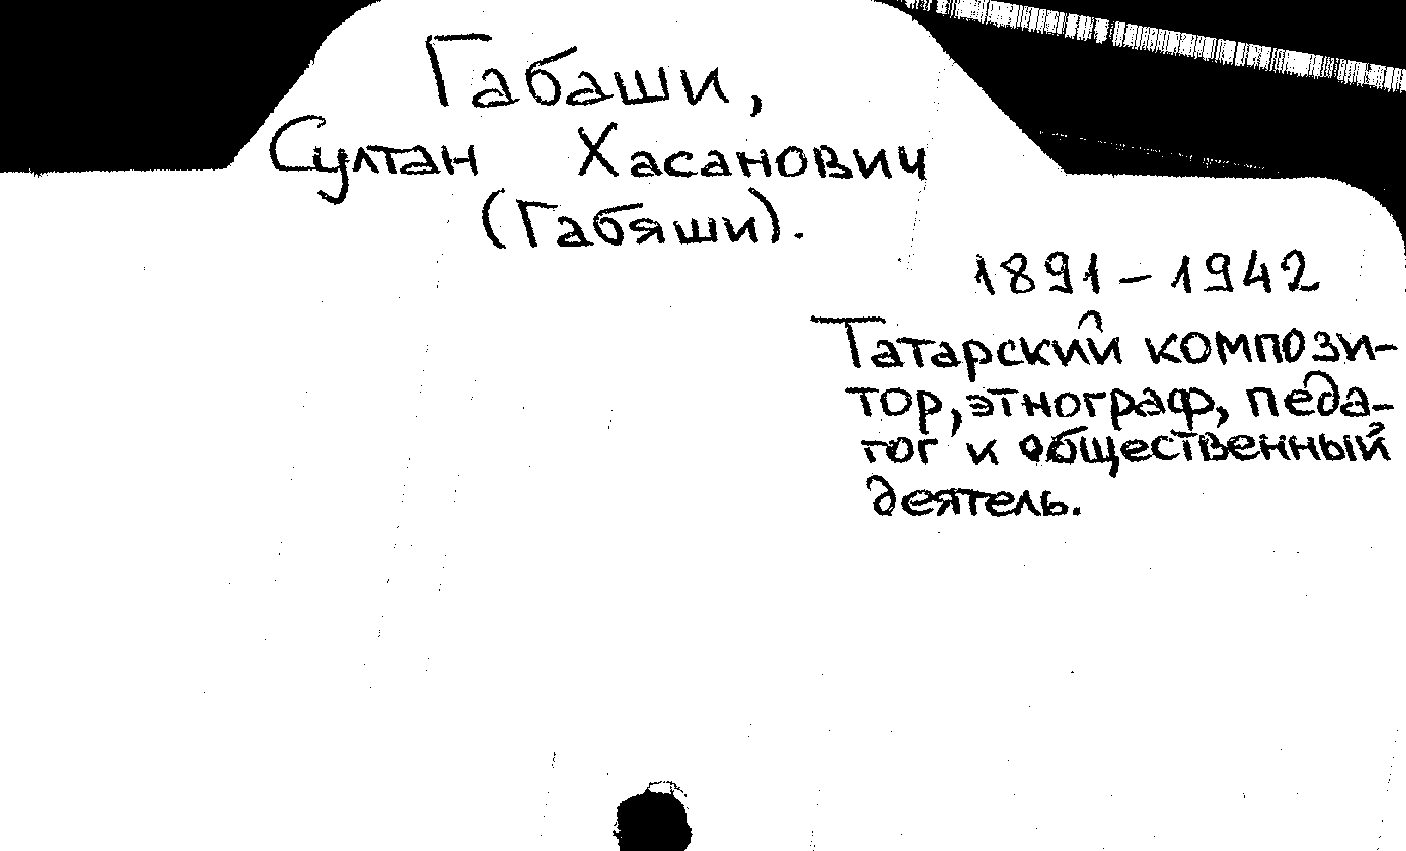 Габаши,
Султан Хасанович
(Габяши).
1891 - 1942
Татарский компози-
тор, этнограф, педа-
гог и общественный
деятель.